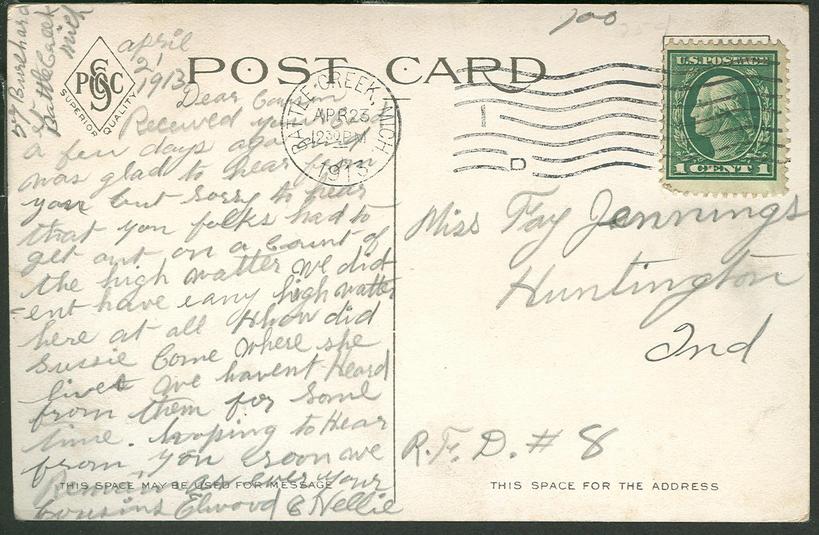 700
57 Burchard
Battle Creek
Mich
PSC
SUPERIOR QUALITY
april
21
1913
POST CARD
BATTLE CREEK, MICH.
APR 23
1230 PM
1913
D
U.S. POSTAGE
1 CENT 1
Dear Cousin
Received your
a few days ago
was glad to hear from
you but sorry to hear
that you folks had to
get out on a count of
the high watter we did
ent have eany high watter
here at all Khow did
Sussie Come where she
lives we havent Heard
from them for some
time. hooping to Hear
from you soon we
Remain as ever your
Cousins Elwood & Nellie
THIS SPACE MAY BE USED FOR MESSAGE
Miss Fay Jennings
Huntington
Ind
R.F.D. # 8
THIS SPACE FOR THE ADDRESS